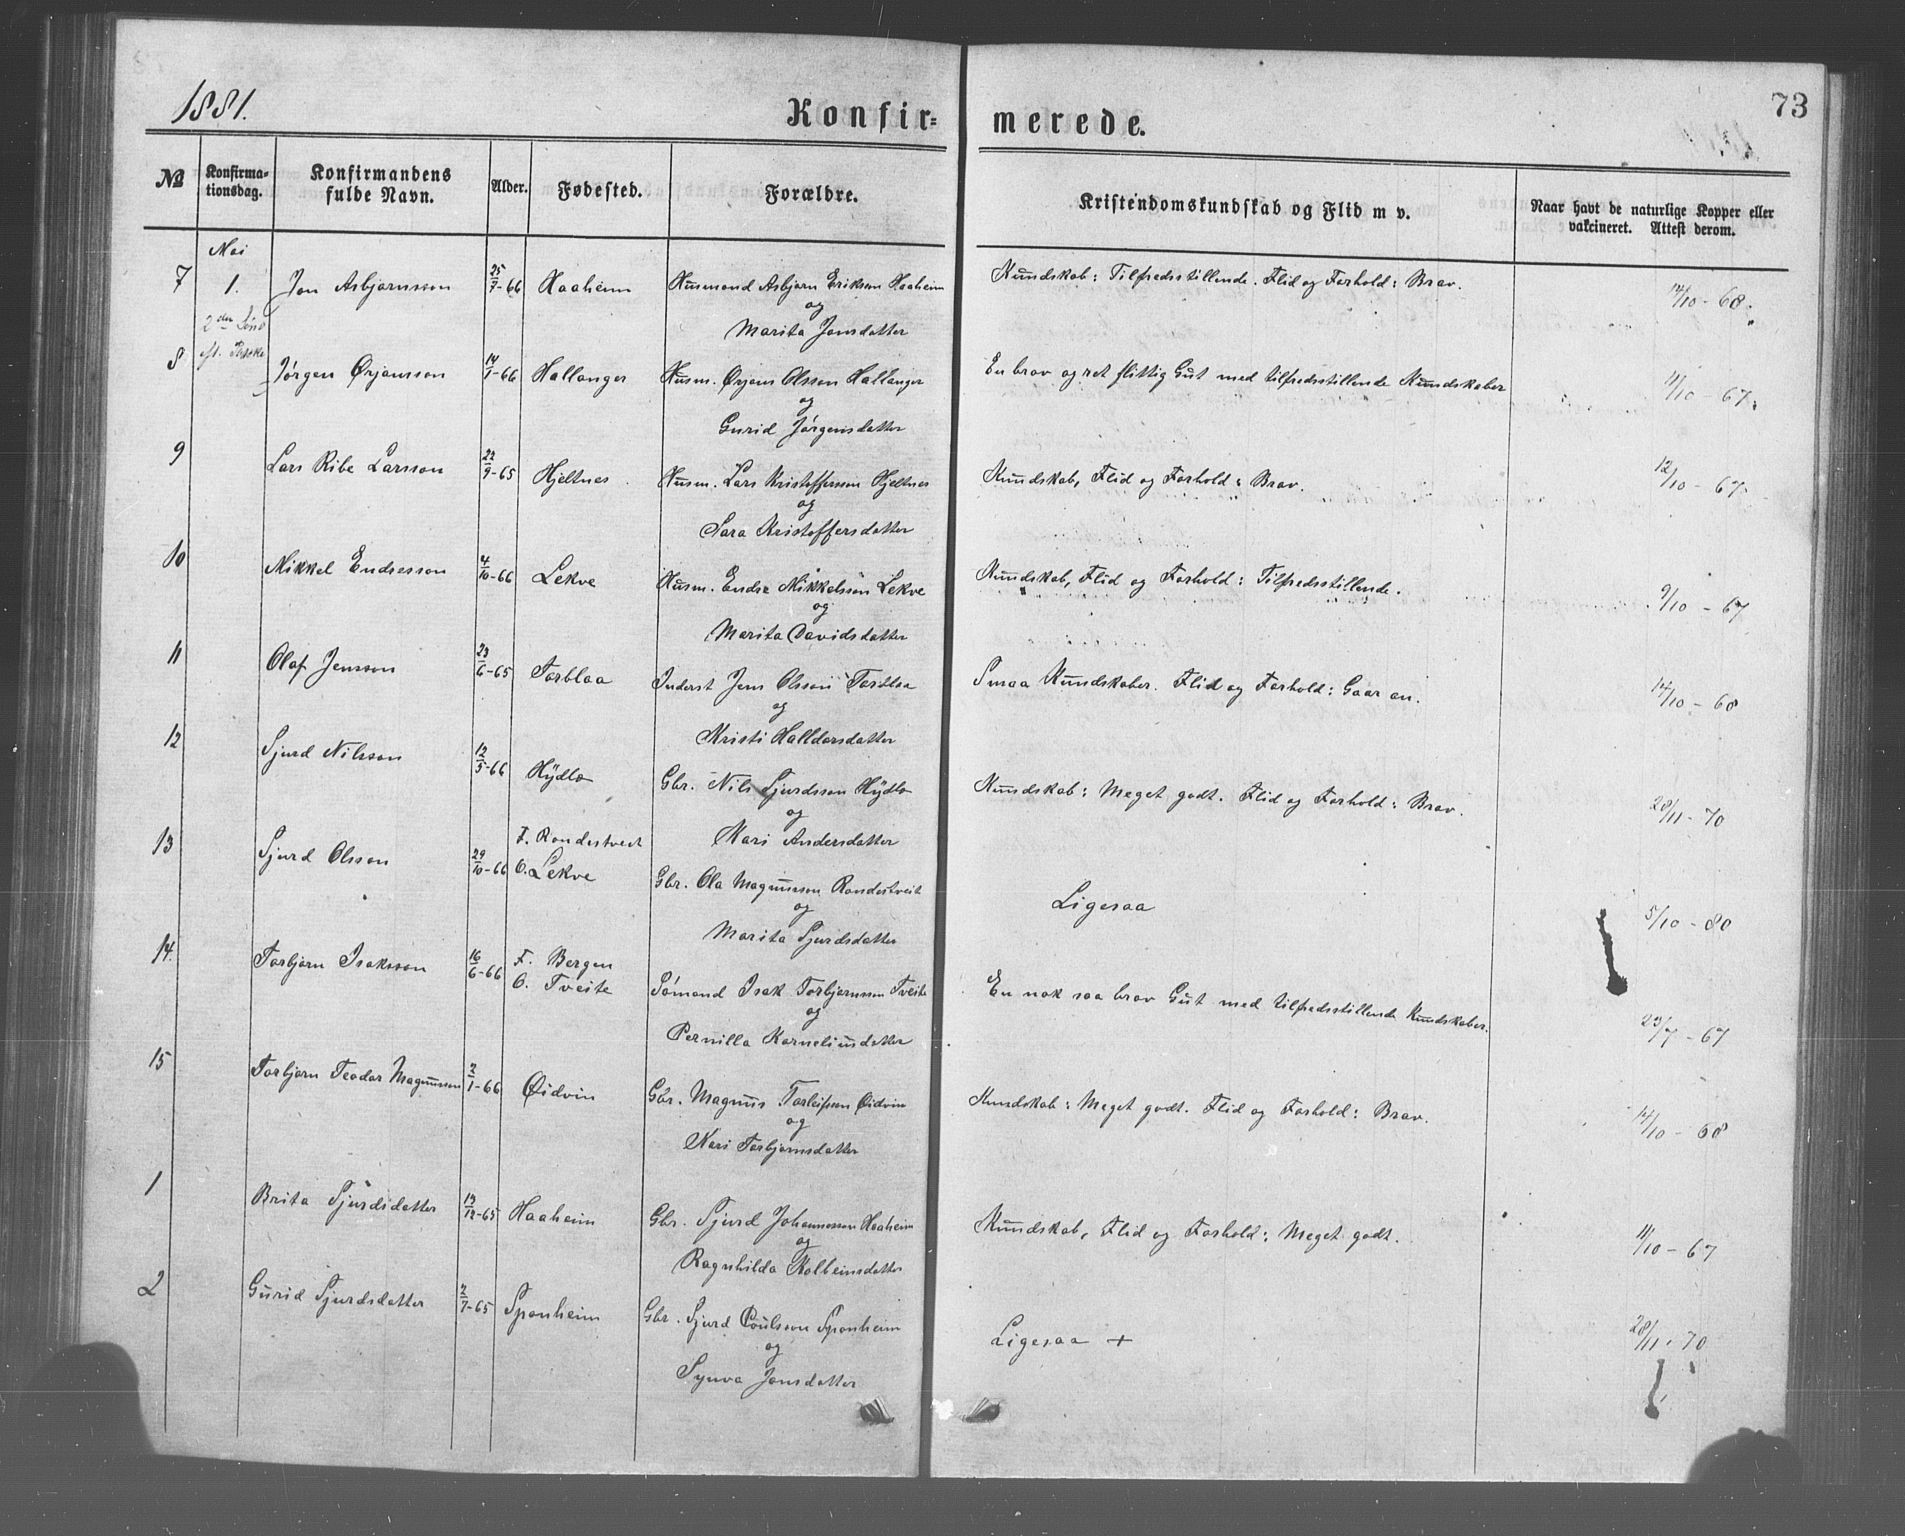 1881.
Konfir=
merede.
73
№
Konfirma-
tionsdag.
Konfirmandens
fulde Navn.
Alder.
Fødested.
Forældre.
Kristendomskundskab og Flid m v.
Naar havt de naturlige Kopper eller
vakcineret. Attest derom.
Mai
7 1. Jon Asbjørnsson 25/7-66 Haaheim Husmand Asbjørn Erikson Haaheim Kundskab: Tilfredsstillende. Flid og Forhold: Brav. 14/10-68.
og
2den Sønd. Marita Jonsdatter
eft. Paaske
8 Jørgen Ørjansson 14/1-66 Hallanger Husm. Ørjans Olsson Hallanger En brav og ret flittig Gut med tilfredsstillende Kundskaber 11/10-67.
og
Gurid Jørgensdatter
9 Lars Ribe Larsson 22/9-65 Hjeltnes Husm. Lars Kristoffersson Hjeltnes Kundskab, Flid og Forhold: Brav. 12/10-67.
og
Sara Kristoffersdatter
10 Mikkel Endresson 4/10-66 Lekve Husm. Endre Mikkelsson Lekve Kundskab, Flid og Forhold: Tilfredsstillende. 9/10-67
og
Marita Davidsdatter
11 Olaf Jensson 23/6-65 Torblaa Inderst Jens Olsson Torblaa Smaa Kundskaber. Flid og Forhold: Gaar an. 14/10-68
og
Kristi Halldorsdatter
12 Sjurd Nilsson 12/5-66 Hydle Gbr. Nils Sjurdsson Hydle Kundskab: Meget godt. Flid og Forhold: Brav. 28/11-70
og
Kari Andersdatter
13 Sjurd Olsson 29/10-66 F. Rondestveit
O. Lekve Gbr. Ola Magnusson Rondestveit Ligesaa 5/10-80
og
Marita Sjurdsdatter
14. Torbjørn Isaksson 16/6-66 F. Bergen
O. Tveite Sømand Isak Torbjørnsson Tveite En nok saa brav Gut med tilfredsstillende Kundskaber. 23/7-67
og
Pernilla Korneliusdatter
15 Torbjørn Teodor Magnusson 2/1-66 Øidvin Gbr. Magnus Torleifson Øidvin Kundskab: Meget godt. Flid og Forhold: Brav. 14/10-68
og
Kari Torbjørnsdatter
1 Brita Sjurdsdatter 13/12-65 Haaheim Gbr. Sjurd Johannesson Haaheim Kundskab, Flid og Forhold: Meget godt. 11/10-67
og
Ragnhilda Kolbeinsdatter
2 Gurid Sjurdsdatter 2/7-65 Sponheim Gbr. Sjurd Poulsson Sponheim Ligesaa + 28/11-70
og
Synva Jonsdatter